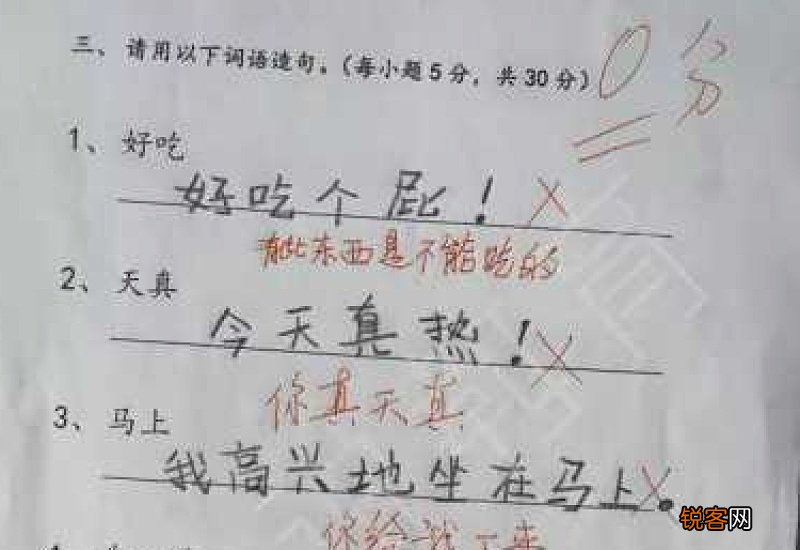 三、请用以下词语造句。(每小题5分，共30分) 0分
1、好吃
好吃个屁！
有些东西是不能吃的
2、天真
今天真热！
你真天真
3、马上
我高兴地坐在马上。
你给我下来
锐客网